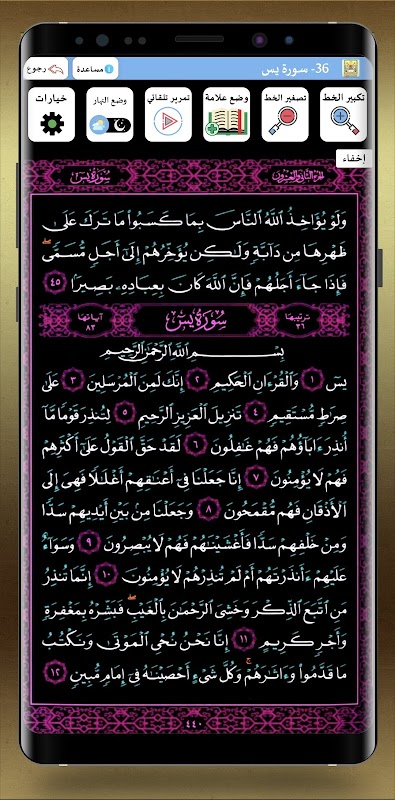 36- سورة يس
مساعدة
رجوع
تكبير الخط
تصغير الخط
وضع علامة
تمرير تلقائي
وضع النهار
خيارات
إخفاء
الجزء الثاني والعشرون
سورة يس
وَلَوْ يُؤَاخِذُ ٱللَّهُ ٱلنَّاسَ بِمَا كَسَبُوا۟ مَا تَرَكَ عَلَىٰ
ظَهْرِهَا مِن دَآبَّةٍ وَلَٰكِن يُؤَخِّرُهُمْ إِلَىٰٓ أَجَلٍ مُّسَمًّى ۖ
فَإِذَا جَآءَ أَجَلُهُمْ فَإِنَّ ٱللَّهَ كَانَ بِعِبَادِهِۦ بَصِيرًۢا ٤٥
ترتيبها ٣٦
سُورَةُ يسٓ
آياتها ٨٣
بِسْمِ ٱللَّهِ ٱلرَّحْمَٰنِ ٱلرَّحِيمِ
يسٓ ١ وَٱلْقُرْءَانِ ٱلْحَكِيمِ ٢ إِنَّكَ لَمِنَ ٱلْمُرْسَلِينَ ٣ عَلَىٰ
صِرَٰطٍ مُّسْتَقِيمٍ ٤ تَنزِيلَ ٱلْعَزِيزِ ٱلرَّحِيمِ ٥ لِتُنذِرَ قَوْمًا مَّآ
أُنذِرَ ءَابَآؤُهُمْ فَهُمْ غَٰفِلُونَ ٦ لَقَدْ حَقَّ ٱلْقَوْلُ عَلَىٰٓ أَكْثَرِهِمْ
فَهُمْ لَا يُؤْمِنُونَ ٧ إِنَّا جَعَلْنَا فِىٓ أَعْنَٰقِهِمْ أَغْلَٰلًا فَهِىَ إِلَى
ٱلْأَذْقَانِ فَهُم مُّقْمَحُونَ ٨ وَجَعَلْنَا مِنۢ بَيْنِ أَيْدِيهِمْ سَدًّا
وَمِنْ خَلْفِهِمْ سَدًّا فَأَغْشَيْنَٰهُمْ فَهُمْ لَا يُبْصِرُونَ ٩ وَسَوَآءٌ
عَلَيْهِمْ ءَأَنذَرْتَهُمْ أَمْ لَمْ تُنذِرْهُمْ لَا يُؤْمِنُونَ ١٠ إِنَّمَا تُنذِرُ
مَنِ ٱتَّبَعَ ٱلذِّكْرَ وَخَشِىَ ٱلرَّحْمَٰنَ بِٱلْغَيْبِ ۖ فَبَشِّرْهُ بِمَغْفِرَةٍ
وَأَجْرٍ كَرِيمٍ ١١ إِنَّا نَحْنُ نُحْىِ ٱلْمَوْتَىٰ وَنَكْتُبُ
مَا قَدَّمُوا۟ وَءَاثَٰرَهُمْ ۚ وَكُلَّ شَىْءٍ أَحْصَيْنَٰهُ فِىٓ إِمَامٍ مُّبِينٍ ١٢
٤٤٠